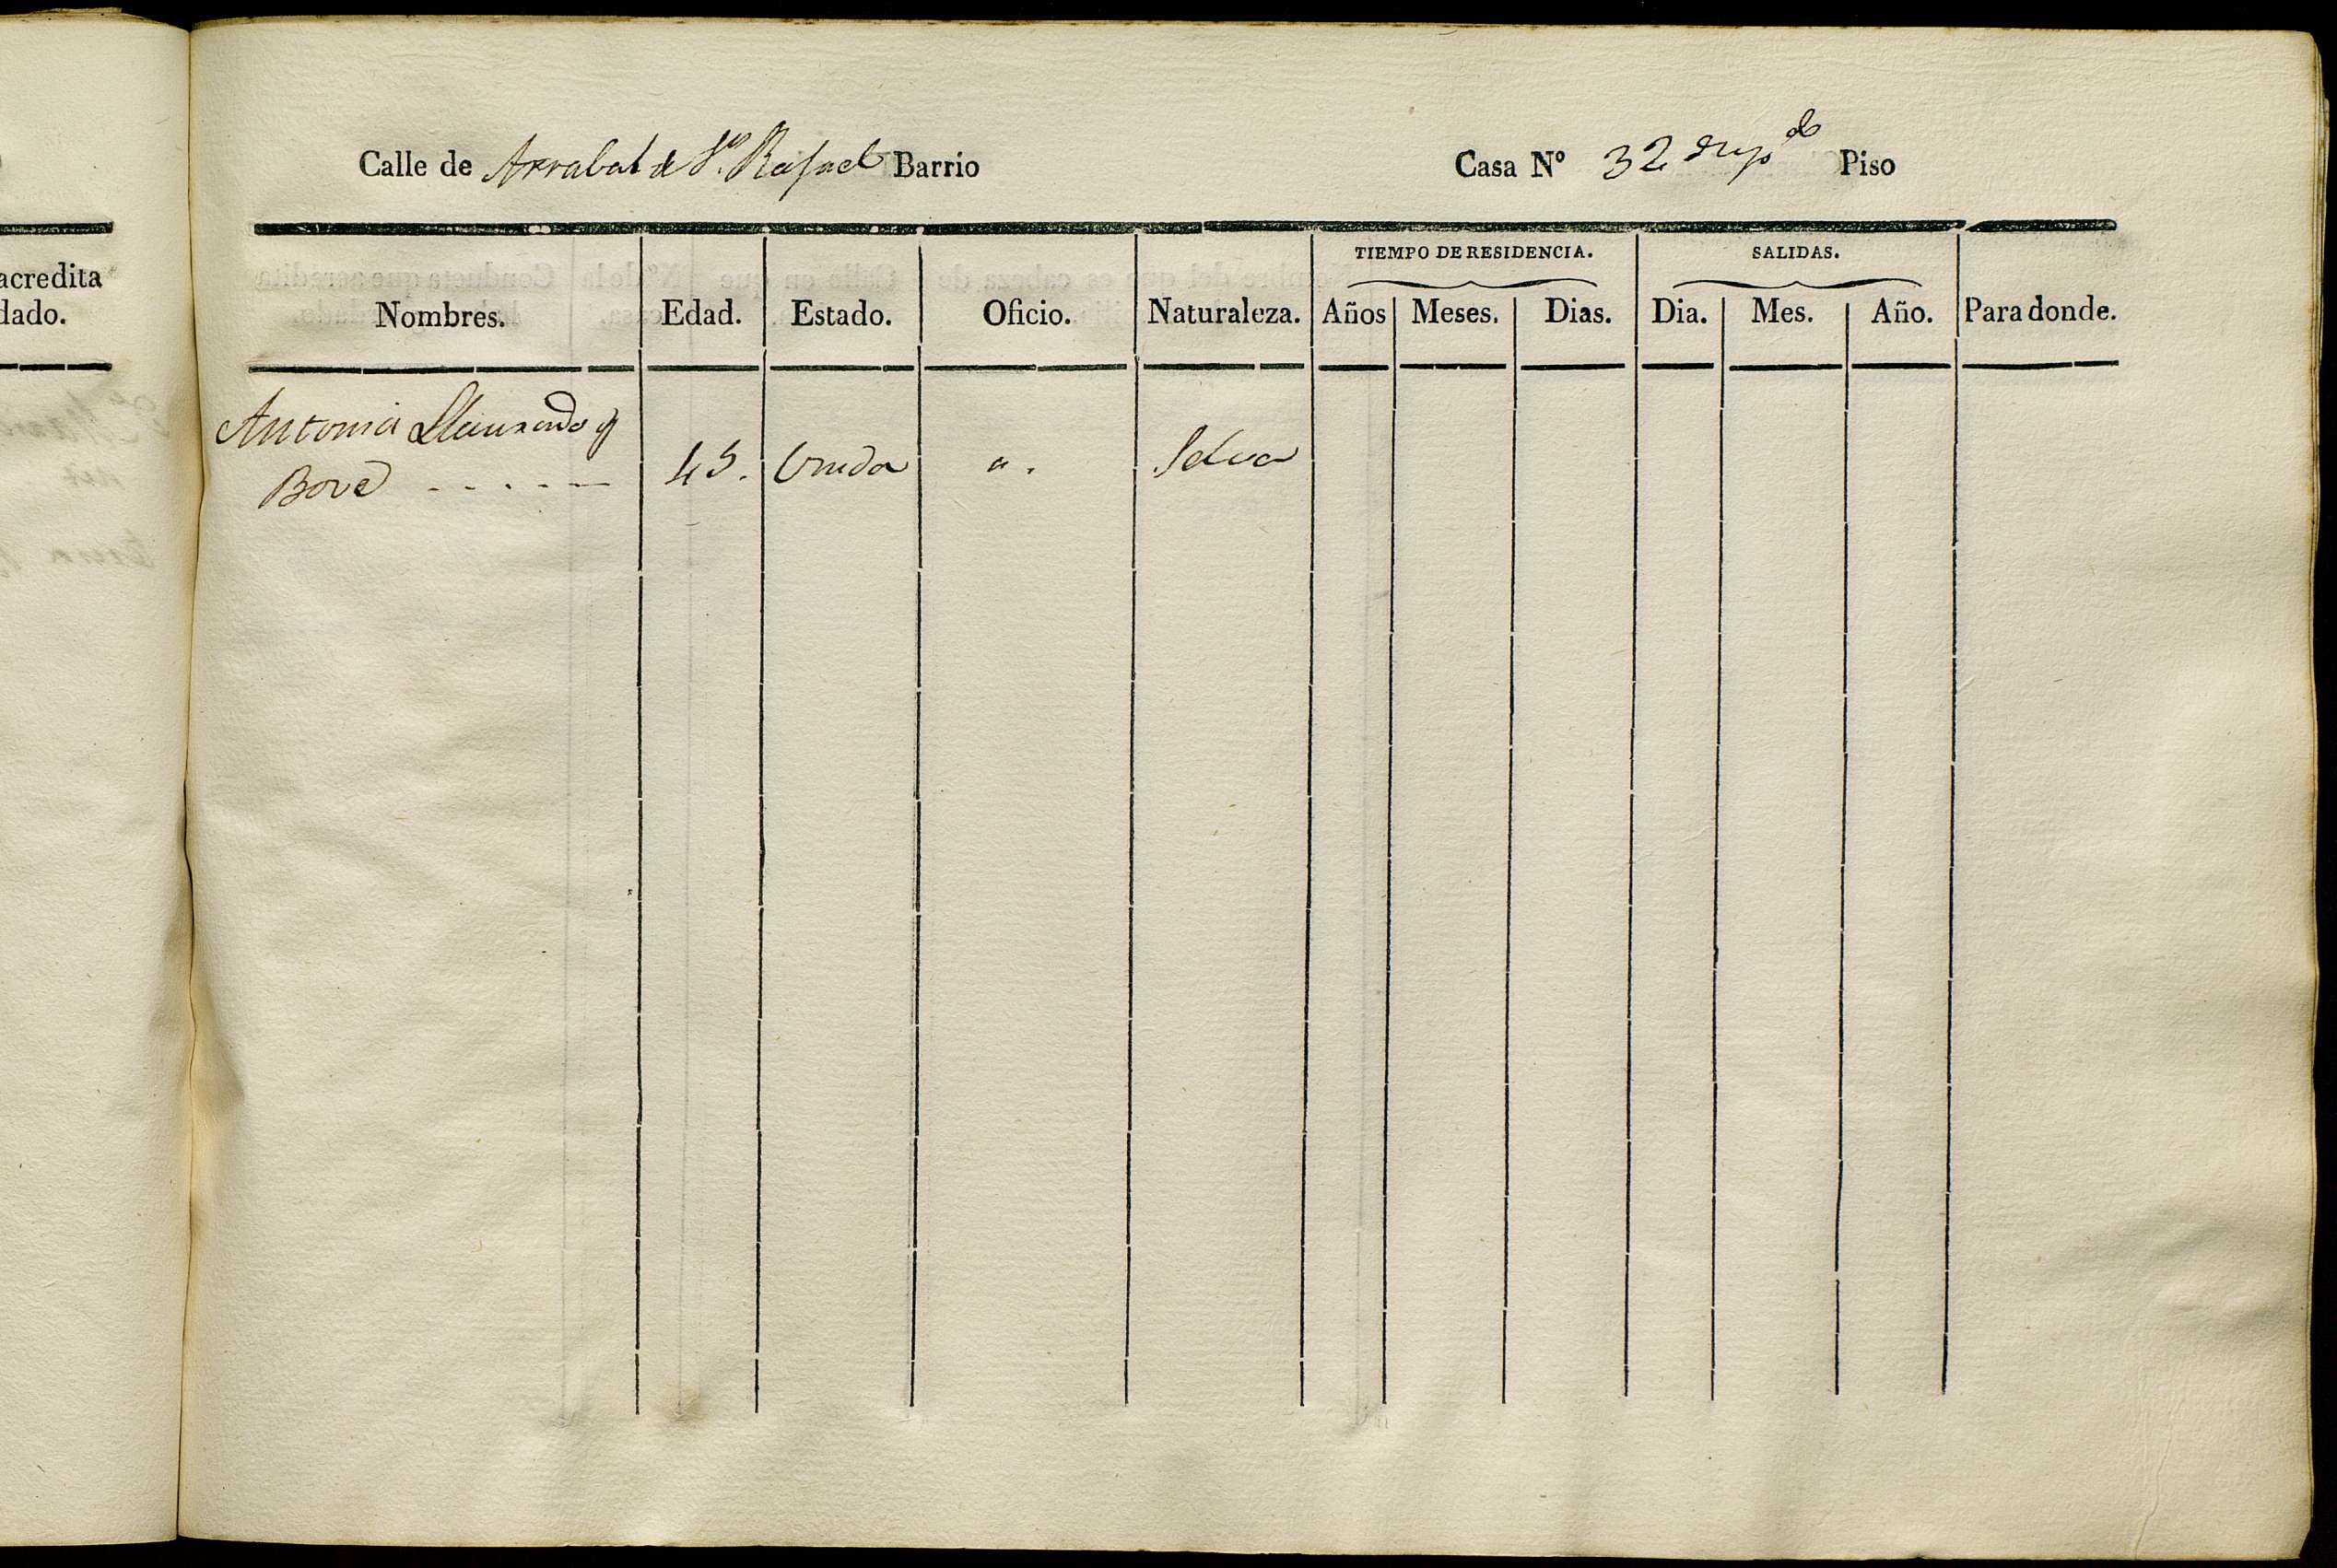 acredita
dado.
Calle de Arrabal de Sn. Rafael Barrio
Casa Nº 32 dup.do Piso
TIEMPO DE RESIDENCIA. SALIDAS.
Nombres. Edad. Estado. Oficio. Naturaleza. Años Meses. Dias. Dia. Mes. Año. Para donde.
Antonia Llaurado y
Bové - - - - - 45. Viuda " . Selva